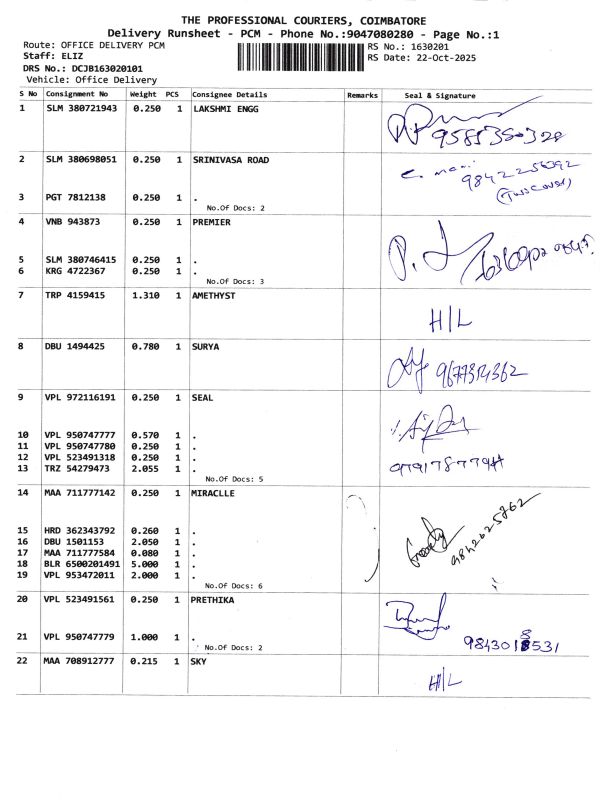 THE PROFESSIONAL COURIERS, COIMBATORE
Delivery Runsheet - PCM - Phone No.:9047080280 - Page No.:1
Route: OFFICE DELIVERY PCM RS No.: 1630201
Staff: ELIZ RS Date: 22-Oct-2025
DRS No.: DCJB163020101
Vehicle: Office Delivery
S No Consignment No Weight PCS Consignee Details Remarks Seal & Signature
1 SLM 380721943 0.250 1 LAKSHMI ENGG
2 SLM 380698051 0.250 1 SRINIVASA ROAD
9842256392
(Two cover)
3 PGT 7812138 0.250 1 .
No.Of Docs: 2
4 VNB 943873 0.250 1 PREMIER
5 SLM 380746415 0.250 1 .
6 KRG 4722367 0.250 1 .
No.Of Docs: 3
7 TRP 4159415 1.310 1 AMETHYST
H/L
8 DBU 1494425 0.780 1 SURYA
9677314362
9 VPL 972116191 0.250 1 SEAL
10 VPL 950747777 0.570 1 .
11 VPL 950747780 0.250 1 .
12 VPL 523491318 0.250 1 .
13 TRZ 54279473 2.055 1 .
No.Of Docs: 5
14 MAA 711777142 0.250 1 MIRACLLE
9842625862
15 HRD 362343792 0.260 1 .
16 DBU 1501153 2.050 1 .
17 MAA 711777584 0.080 1 .
18 BLR 6500201491 5.000 1 .
19 VPL 953472011 2.000 1 .
No.Of Docs: 6
20 VPL 523491561 0.250 1 PRETHIKA
21 VPL 950747779 1.000 1 .
No.Of Docs: 2
22 MAA 708912777 0.215 1 SKY
H/L